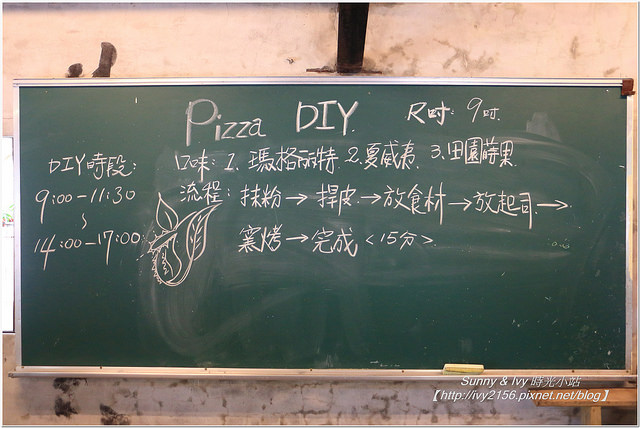 Pizza DIY. 尺吋: 9吋.
口味: 1. 瑪格麗特 2. 夏威夷 3. 田園蒔果
流程: 抹粉→捍皮→放食材→放起司→
窯烤→完成<15分>
DIY時段:
9:00-11:30
~
14:00-17:00
Sunny & Ivy 時光小站
【http://ivy2156.pixnet.net/blog】